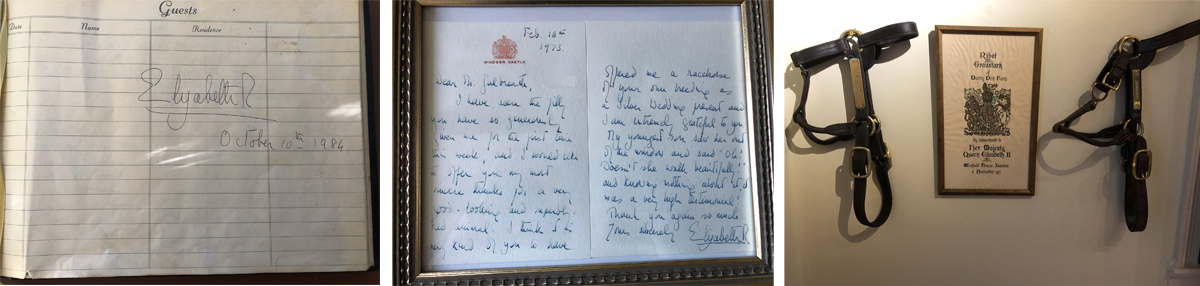 Guests
Date Name Residence
Elizabeth R
October 10th 1984
Feb. 18th
1973.
WINDSOR CASTLE
Dear Mr. Galbreath,
I have seen the filly
you have so generously
given me for the first time
this week, and I would like
to offer you my most
sincere thanks for a very
good-looking and superbly
bred animal. I think it is
very kind of you to have
offered me a racehorse
of your own breeding as
a Silver Wedding present and
I am extremely grateful to you.
My youngest son saw her out
of the window and said "Oh!
Doesn't she walk beautifully"
and knowing nothing about it, it
was a very high testimonial!
Thank you again so much.
Yours sincerely
Elizabeth R
Ribot
Graustark
of
Darby Dan Farm
by appointment to
Her Majesty
Queen Elizabeth II
Winfield House, London